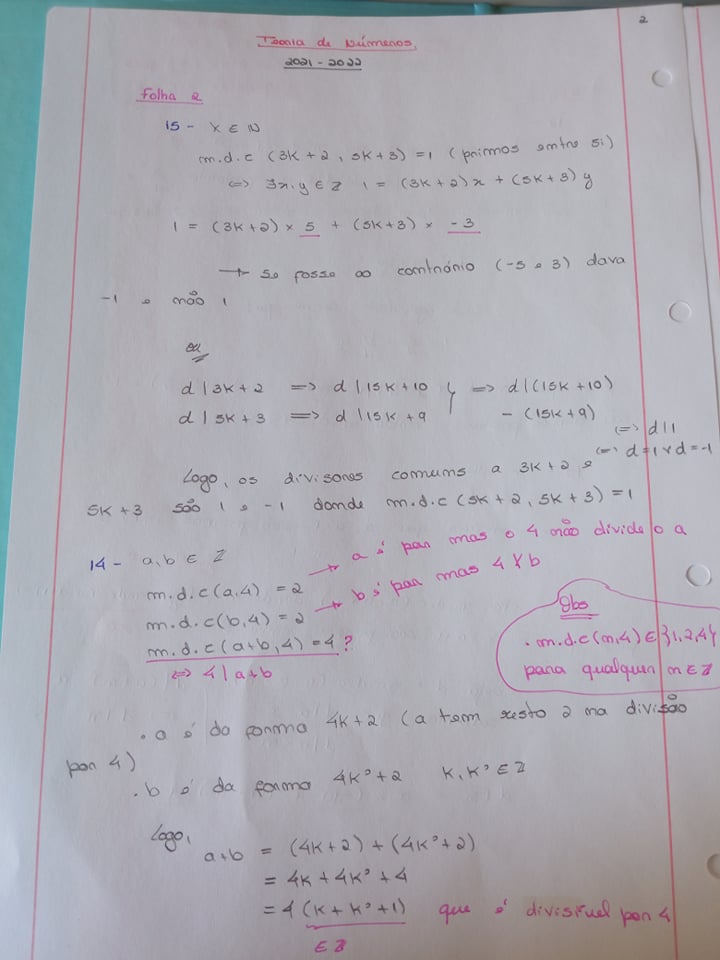 2
Teoria de Números,
2021 - 2022
Folha 2
15 - K ∈ ℕ
m.d.c (3K+2, 5K+3) = 1 (primos entre si)
⇔ ∃x,y ∈ ℤ 1 = (3K+2)x + (5K+3)y
1 = (3K+2) × 5 + (5K+3) × -3
→ se fosse ao contrário (-5 e 3) dava
-1 e não 1
ou
d | 3K+2 ⟹ d | 15K+10 } ⟹ d | (15K+10)
d | 5K+3 ⟹ d | 15K+9 - (15K+9)
⇔ d | 1
⇔ d=1 ∨ d=-1
Logo, os divisores comuns a 3K+2 e
5K+3 são 1 e -1 donde m.d.c (5K+2, 5K+3) = 1
14 - a,b ∈ ℤ
m.d.c (a,4) = 2 → a é par mas o 4 não divide o a
m.d.c (b,4) = 2 → b é par mas 4 ∤ b
m.d.c (a+b,4) = 4 ?
⇔ 4 | a+b
Obs
. m.d.c (n,4) ∈ {1,2,4}
para qualquer n ∈ ℤ
. a é do forma 4K+2 (a tem resto 2 na divisão
por 4)
. b é da forma 4K'+2 K, K' ∈ ℤ
Logo,
a+b = (4K+2) + (4K'+2)
= 4K + 4K' + 4
= 4 (K + K' + 1) que é divisível por 4
∈ ℤ